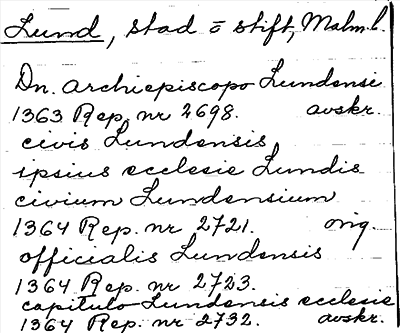 Lund, stad o stift, Malm.l.
Dn. archiepiscopo Lundensi
1363 Rep. nr 2698. avskr.
civis Lundensis
ipsius ecclesie Lundis
civium Lundensium
1364 Rep. nr 2721. orig.
officialis Lundensis
1364 Rep. nr 2723.
capitulo Lundensis ecclesie
1364 Rep. nr 2732. avskr.